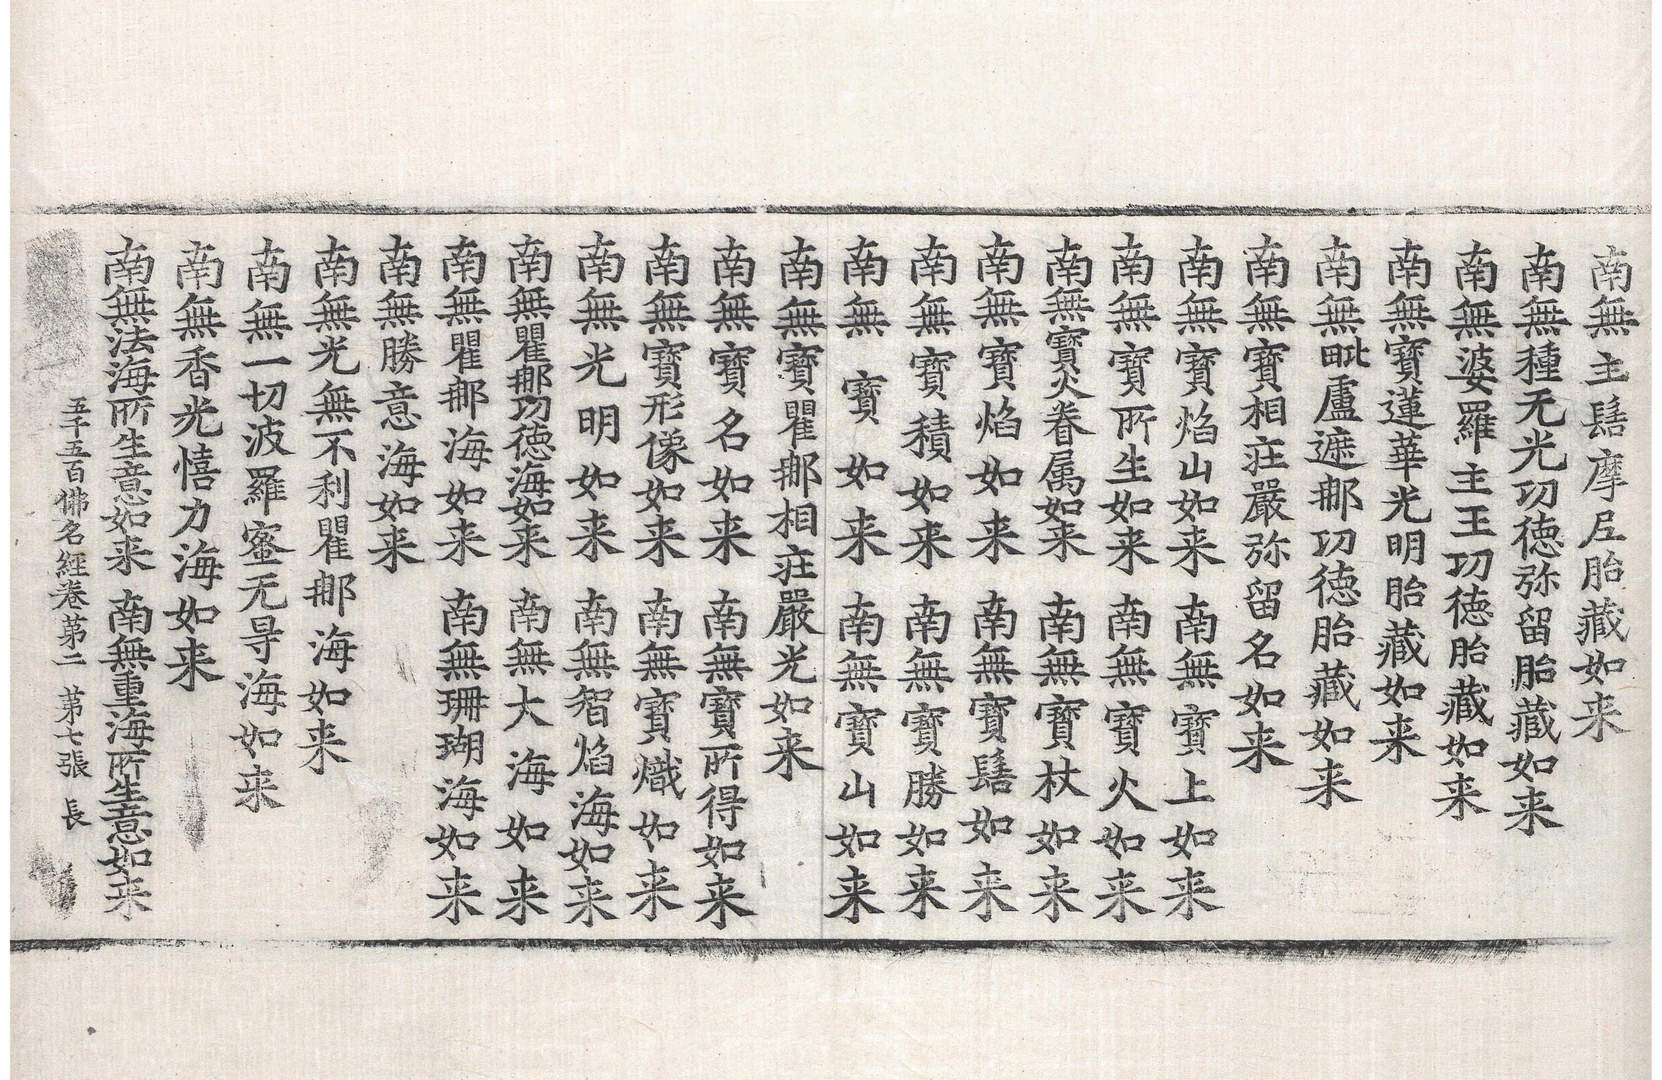 南無主髻摩尼胎藏如来
南無種无光功徳弥留胎藏如来
南無婆羅主王功徳胎藏如来
南無寶蓮華光明胎藏如来
南無毗盧遮那功徳胎藏如来
南無寶相莊嚴弥留名如来
南無寶焰山如来 南無寶上如来
南無寶所生如来 南無寶火如来
南無寶火眷属如来 南無寶杖如来
南無寶焰如来 南無寶髻如来
南無寶積如来 南無寶勝如来
南無寶如来 南無寶山如来
南無寶瞿那相莊嚴光如来
南無寶名如来 南無寶所得如来
南無寶形像如来 南無寶熾如来
南無光明如来 南無智焰海如来
南無瞿那功徳海如来 南無大海如来
南無瞿那海如来 南無珊瑚海如来
南無勝意海如来
南無光無不利瞿那海如来
南無一切波羅蜜无㝵海如来
南無香光憘力海如来
南無法海所生意如来 南無重海所生意如来
五千五百佛名經卷第二 第七張 長